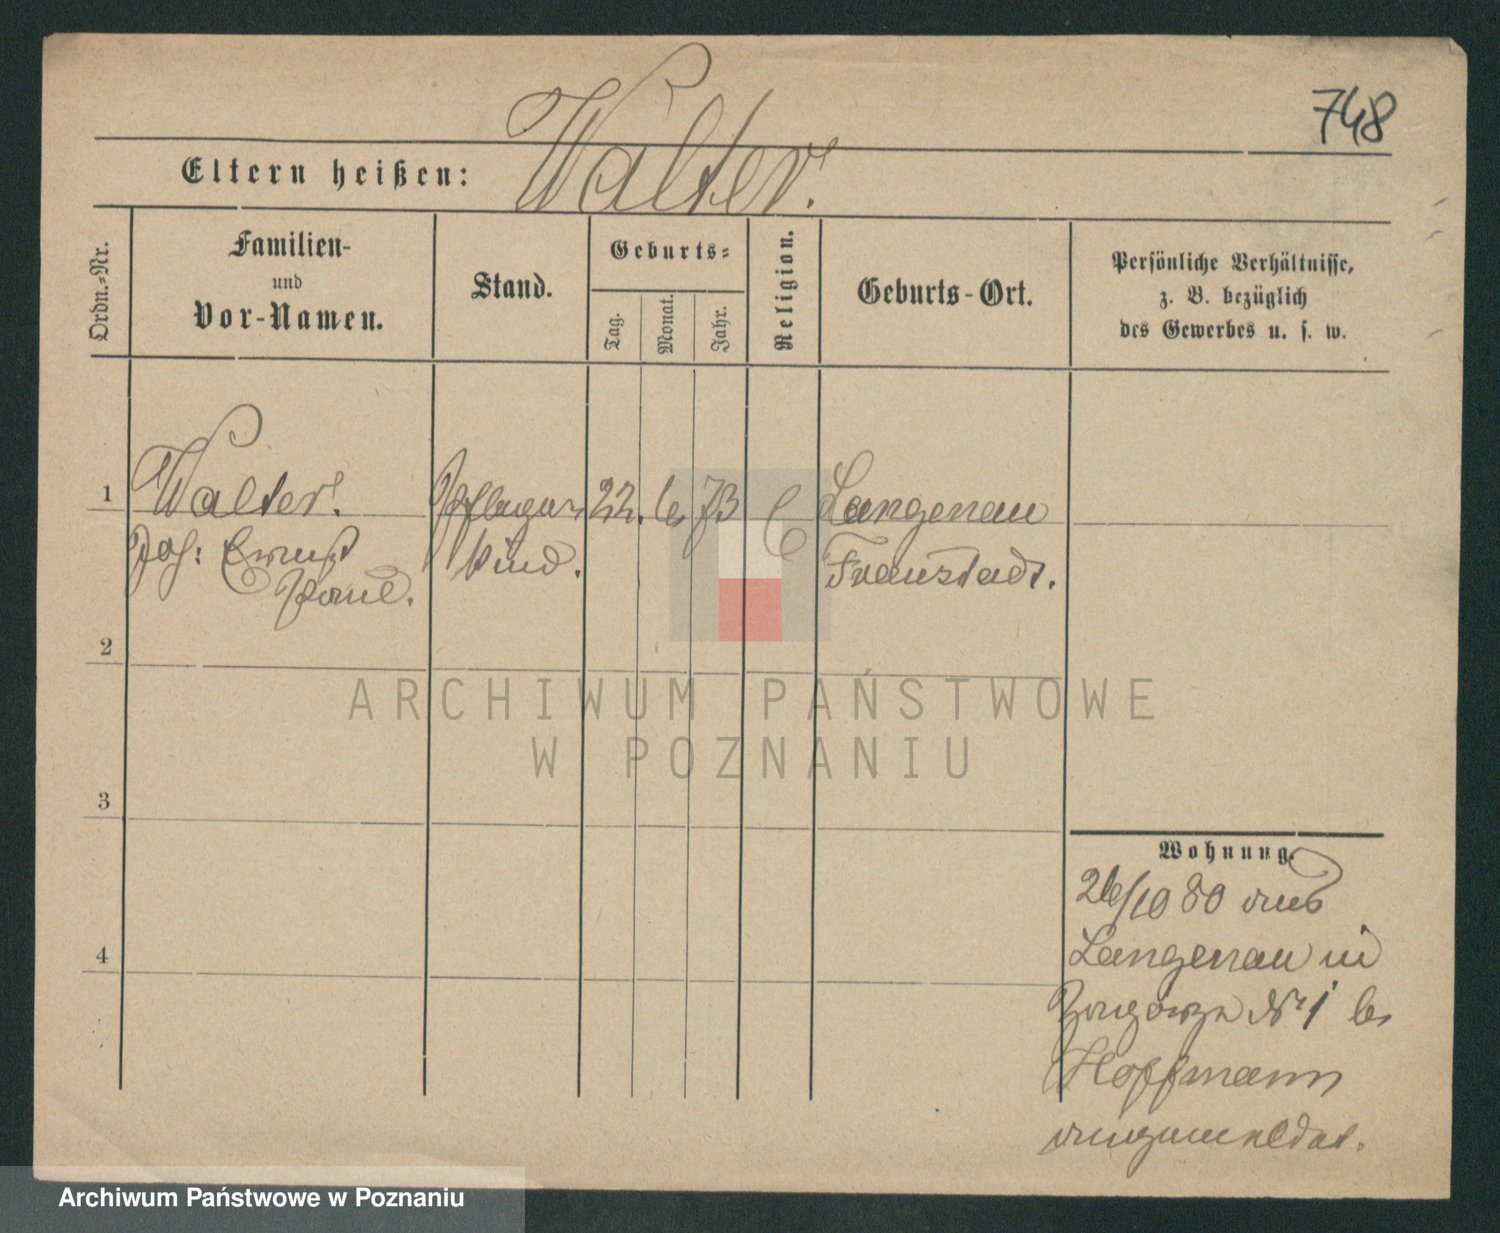 748
Eltern heißen: Walter.
Ordn.-Nr.
Familien-
und
Vor-Namen.
Stand.
Geburts-
Tag.
Monat.
Jahr.
Religion.
Geburts-Ort.
Persönliche Verhältnisse,
z. B. bezüglich
des Gewerbes u. s. w.
1 Walter. Pflege 22. 6 73 Langenau
Joh: Ernst kind. Fraustadt.
Paul.
2
3
4
Wohnung.
26/10 80 aus
Langenau in
Zagorze Nr 1 bei
Hoffmann
angemeldet.
ARCHIWUM PAŃSTWOWE
W POZNANIU
Archiwum Państwowe w Poznaniu